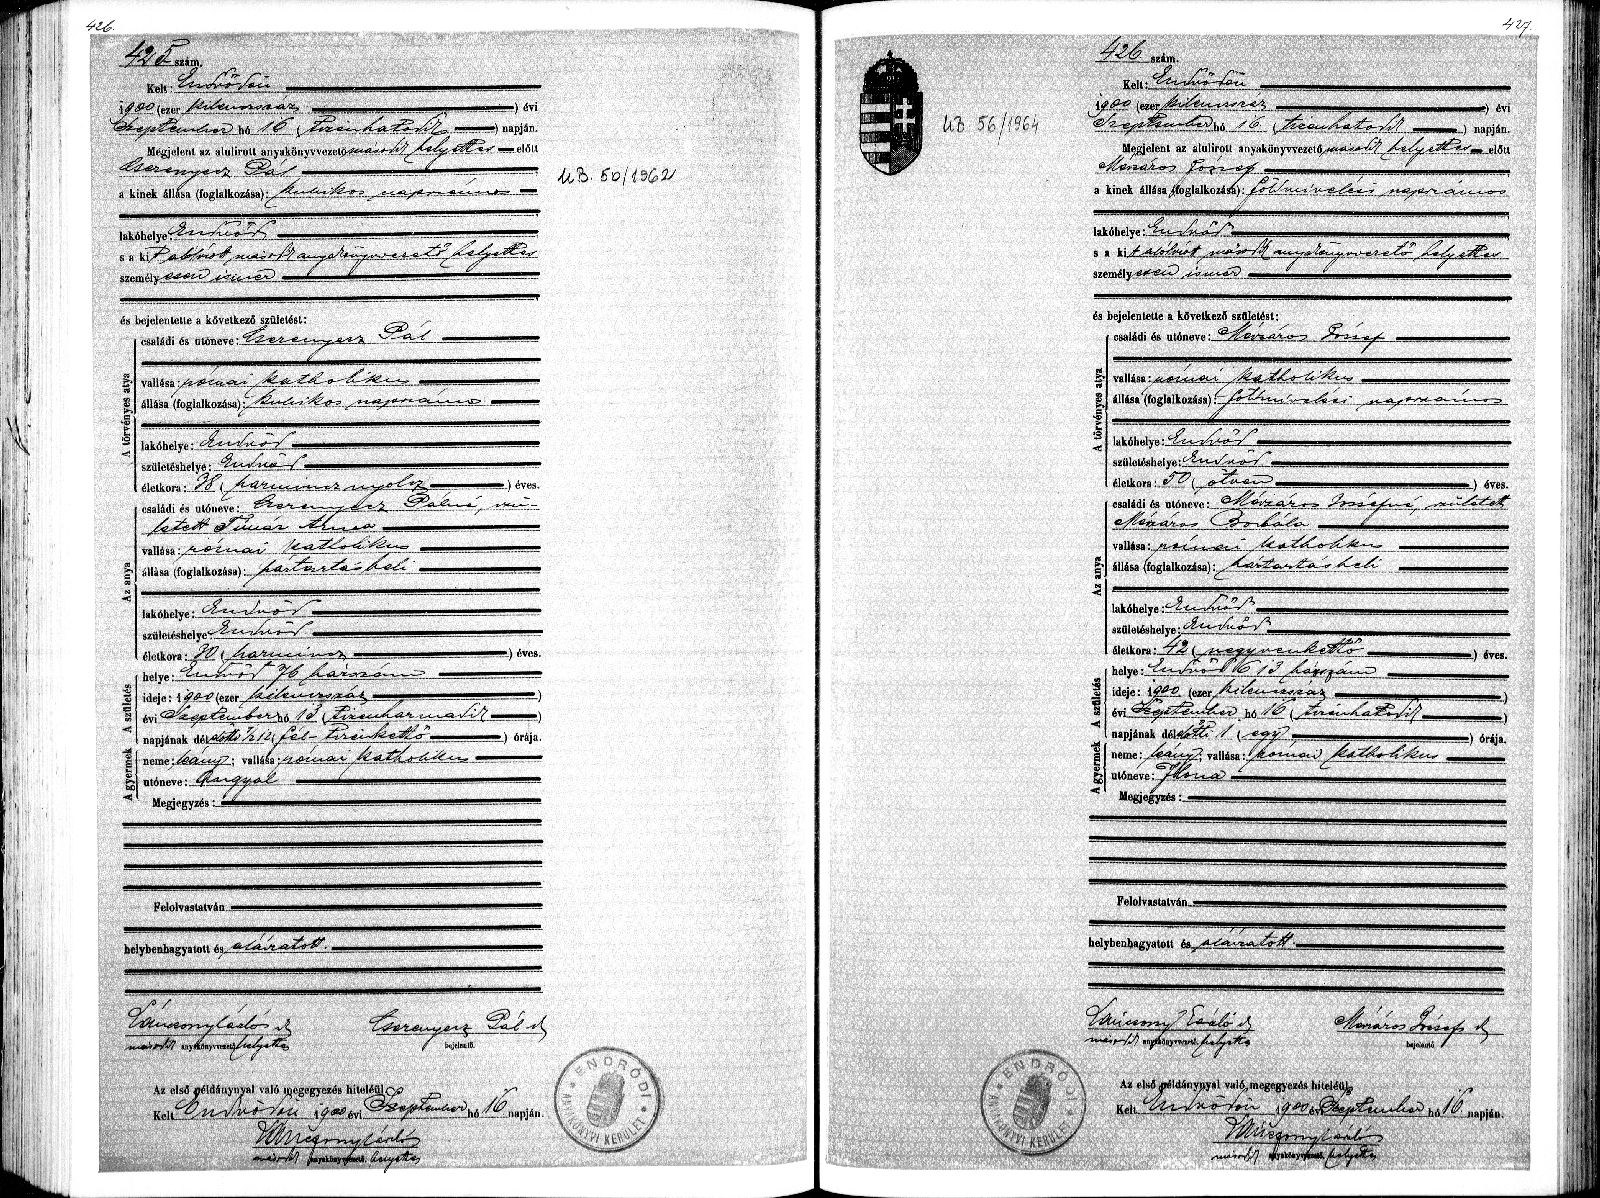 426.
425 szám.
Kelt: Endrődön
1900 (ezer kilenczszáz) évi
Szeptember hó 16 (tizenhatodik) napján.
Megjelent az alulirott anyakönyvvezető második helyettes előtt
Cserenyesz Pál
a kinek állása (foglalkozása): kubikos napszámos
lakóhelye: Endrőd
s a kit alólirott, második anyakönyvvezető helyettes
személyesen ismer
és bejelentette a következő születést:
A törvényes atya
családi és utóneve: Cserenyesz Pál
vallása: római katholikus
állása (foglalkozása): kubikos napszámos
lakóhelye: Endrőd
születéshelye: Endrőd
életkora: 38 (harmincz nyolcz) éves.
Az anya
családi és utóneve: Cserenyesz Pálné, szü-
letett Tímár Anna
vallása: római katholikus
állása (foglalkozása): háztartásbeli
lakóhelye: Endrőd
születéshelye: Endrőd
életkora: 30 (harmincz) éves.
A születés
helye: Endrőd 76 házszám
ideje: 1900 (ezer kilenczszáz)
évi Szeptember hó 13 (tizenharmadik)
napjának délelőtti ½12 (fél-tizenkettő) órája.
A gyermek
neme: leány; vallása: római katholikus
utóneve: Angyal
Megjegyzés:
Felolvastatván
helybenhagyatott és aláíratott.
második anyakönyvvezető helyettes
Cserenyesz Pál
bejelentő.
Az első példánynyal való megegyezés hiteléül
Kelt Endrődön 1900 évi Szeptember hó 16 napján.
második anyakönyvvezető helyettes
UB. 50/1962
ENDRŐDI
ANYAKÖNYVI KERÜLET
427.
426 szám.
Kelt: Endrődön
1900 (ezer kilenczszáz) évi
Szeptember hó 16 (tizenhatodik) napján.
Megjelent az alulirott anyakönyvvezető második helyettes előtt
Mészáros József
a kinek állása (foglalkozása): földmivelési napszámos
lakóhelye: Endrőd
s a kit alólirott, második anyakönyvvezető helyettes
személyesen ismer
és bejelentette a következő születést:
A törvényes atya
családi és utóneve: Mészáros József
vallása: római katholikus
állása (foglalkozása): földmivelési napszámos
lakóhelye: Endrőd
születéshelye: Endrőd
életkora: 50 (ötven) éves.
Az anya
családi és utóneve: Mészáros Józsefné, született
Mészáros Borbála
vallása: római katholikus
állása (foglalkozása): háztartásbeli
lakóhelye: Endrőd
születéshelye: Endrőd
életkora: 42 (negyvenkettő) éves.
A születés
helye: Endrőd 613 házszám
ideje: 1900 (ezer kilenczszáz)
évi Szeptember hó 16 (tizenhatodik)
napjának délelőtti 1 (egy) órája.
A gyermek
neme: leány; vallása: római katholikus
utóneve: Ilona
Megjegyzés:
Felolvastatván
helybenhagyatott és aláíratott.
második anyakönyvvezető helyettes
Mészáros József
bejelentő
Az első példánynyal való megegyezés hiteléül
Kelt Endrődön 1900 évi Szeptember hó 16 napján.
második anyakönyvvezető helyettes
UB 56/1964
ENDRŐDI
ANYAKÖNYVI KERÜLET